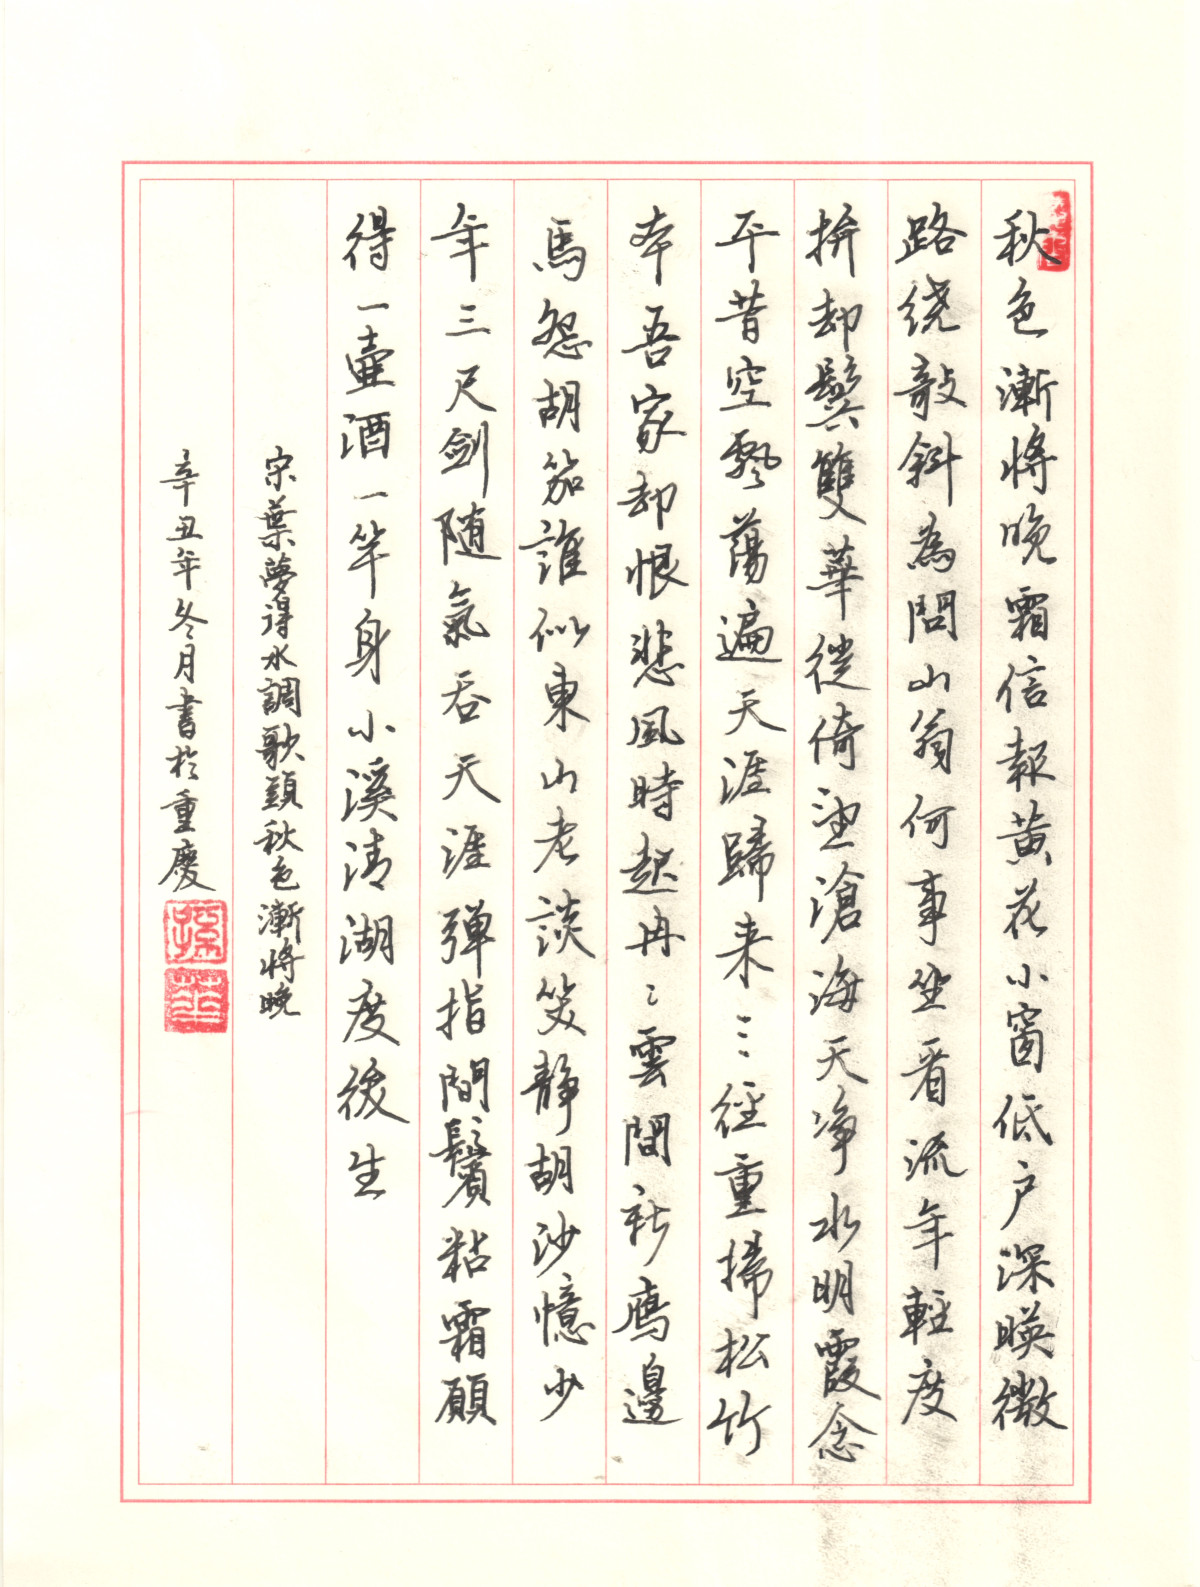 秋色漸將晚霜信報黄花小窗低户深暎微
路绕敧斜為問山翁何事坐看流年輕度
拚却鬢雙華徙倚望滄海天净水明霞念
平昔空飄蕩遍天涯歸来三徑重掃松竹
本吾家却恨悲風時起冉〻雲間新鴈邊
馬怨胡笳誰似東山老談笑静胡沙憶少
年三尺劍随氣吞天涯弹指間鬢粘霜願
得一壷酒一竿身小溪清湖度後生
宋葉夢得水調歌頭秋色漸將晚
辛丑年冬月書於重慶
孫
華